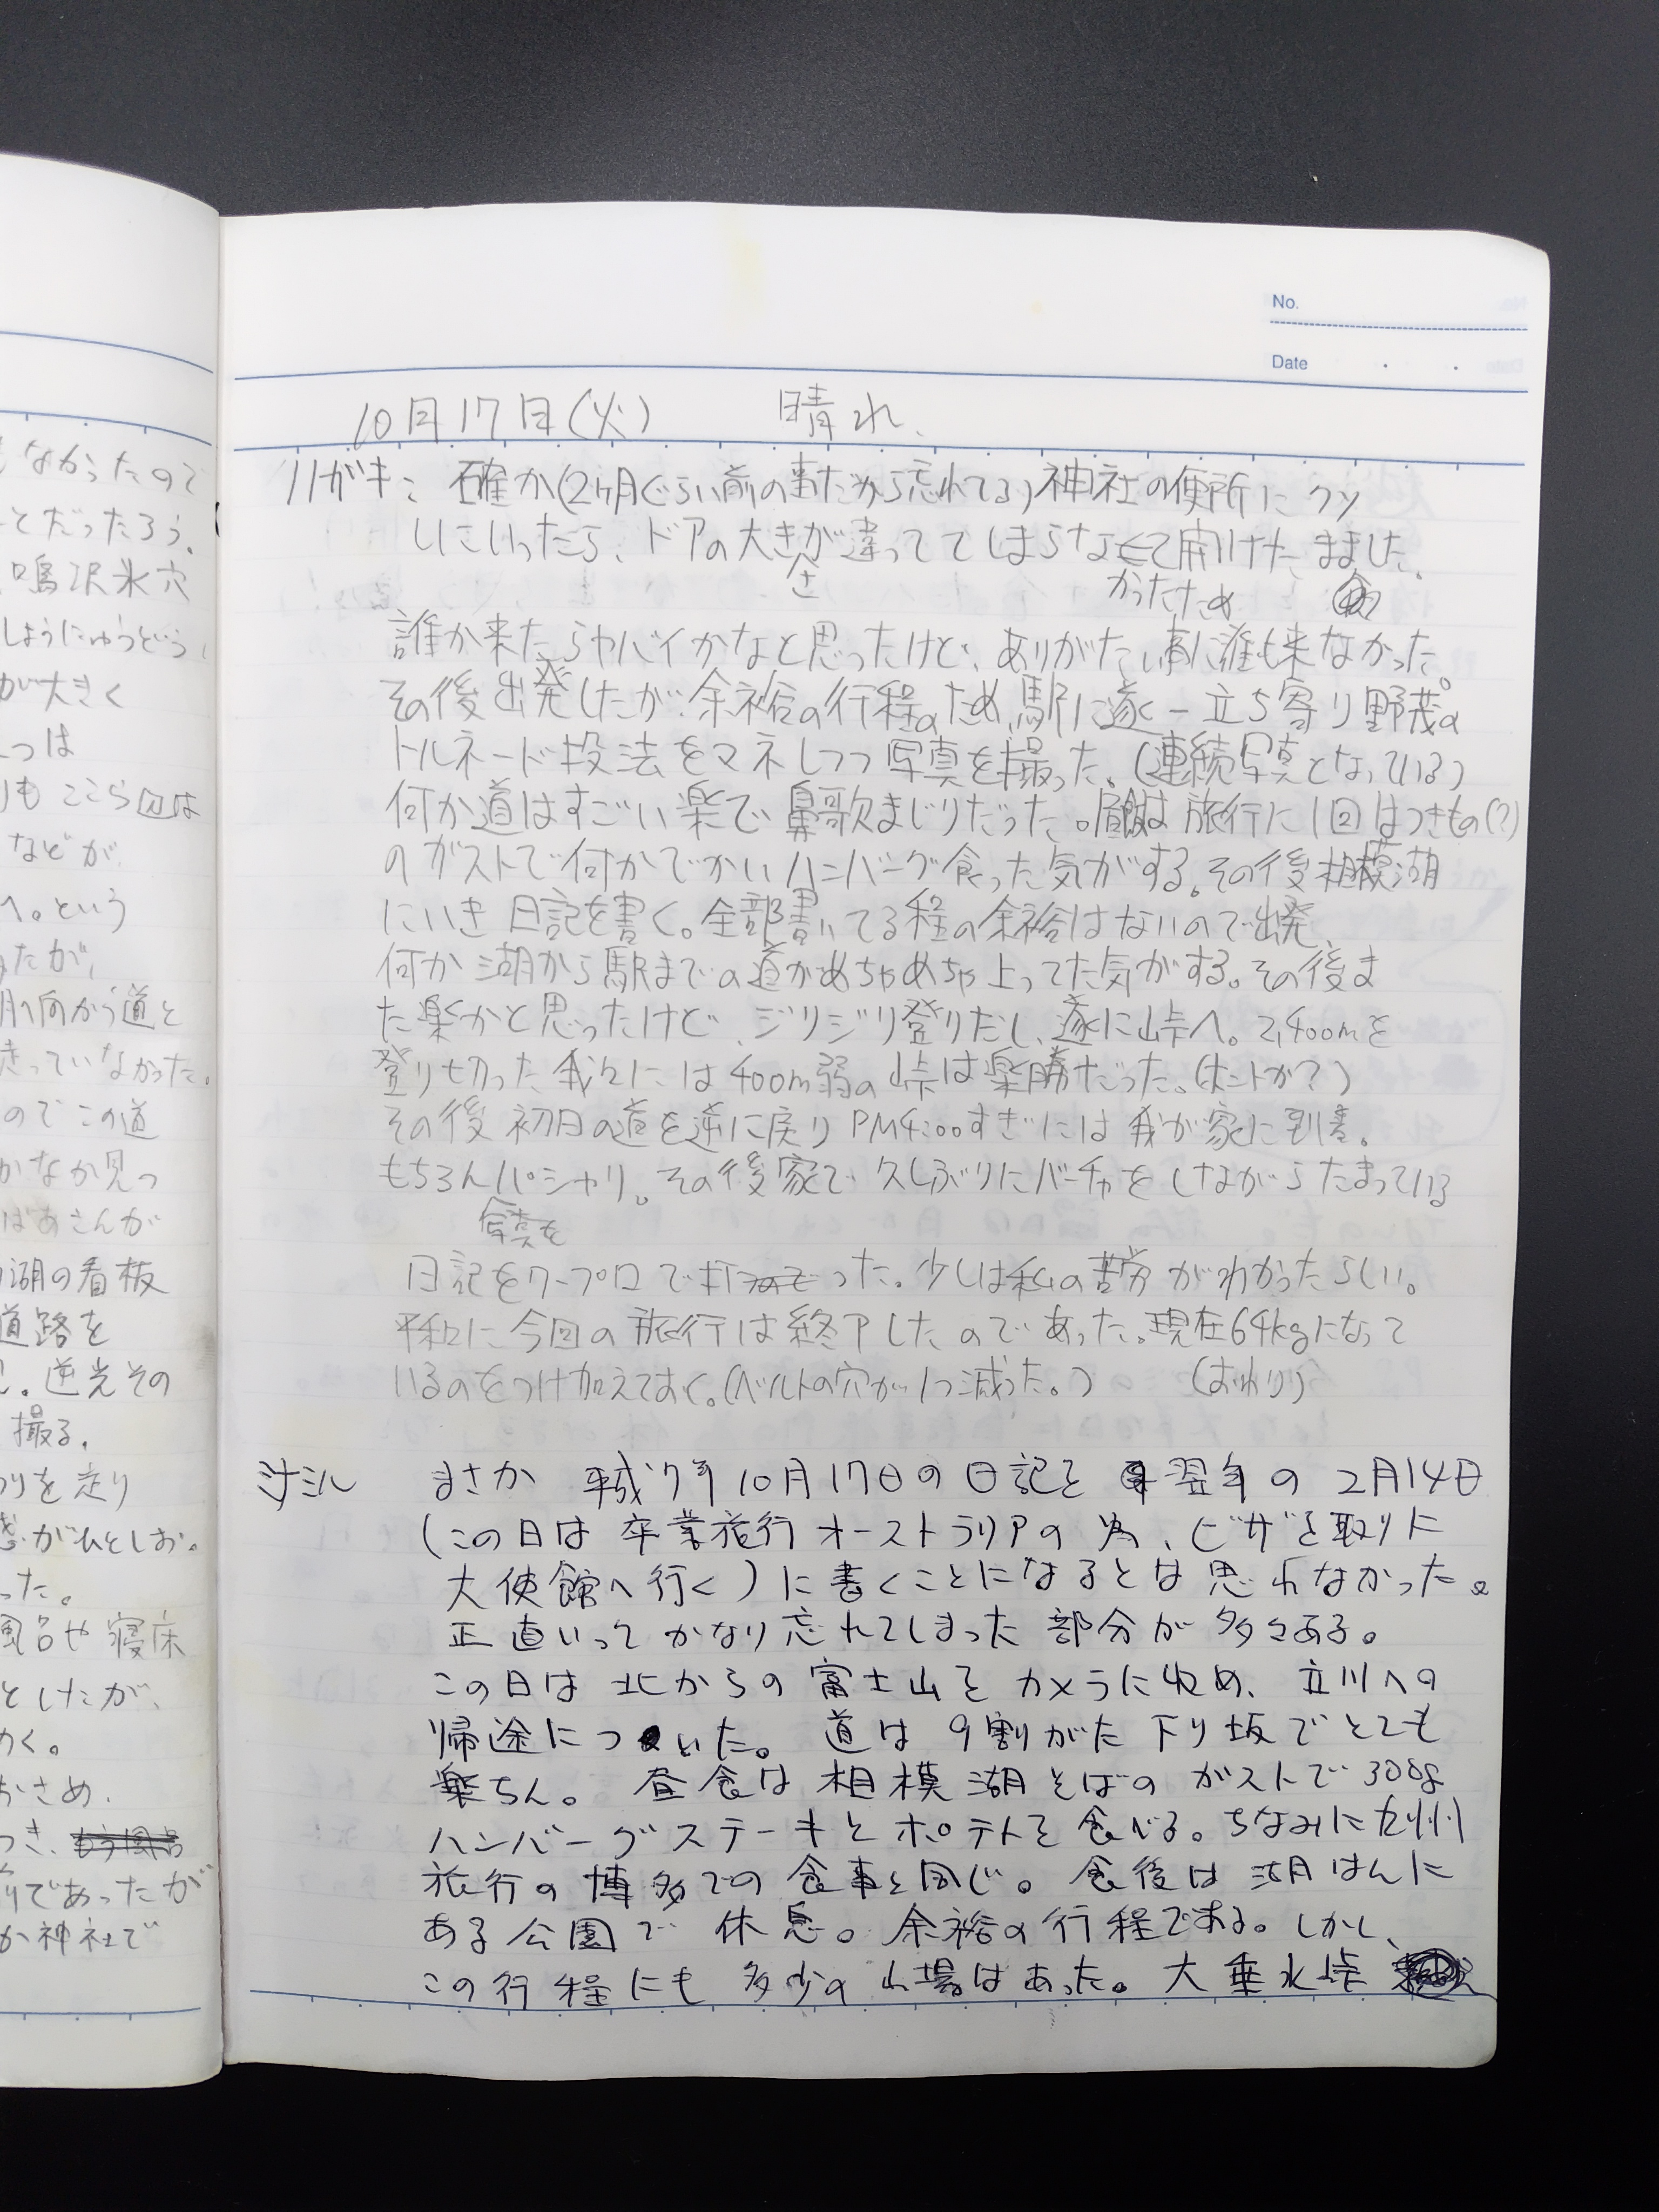 もなかったので
とだったろう。
鳴沢氷穴
しょうにゅうどう
が大きく
つは
りも ここら辺は
などが
へ。という
たが、
へ向かう道と
きっていなかった。
のでこの道
かなか見つ
ばあさんが
湖の看板
道路を
逆光その
撮る。
つりを走り
感がひとしお。
った。
風呂や寝床
としたが、
かく。
おさめ、
つき、
りであったが
か神社で
No.
Date
10月17日(火) 晴れ、
ハガキ: 確か(2ヶ月ぐらい前の事だから忘れてる)神社の便所にクソ
しにいったら、ドアの大きさが違っててしまらなかったため開けたまました。
誰か来たらヤバイかなと思ったけど、ありがたい事に誰も来なかった。
その後出発したが、余裕の行程のため、駅に遂一立ち寄り野茂の
トルネード投法をマネしつつ写真を撮った。(連続写真となっている)
何か道はすごい楽で鼻歌まじりだった。昼飯は旅行に1回はつきもの(?)
のガストで何かでかいハンバーグ食った気がする。その後相模湖
にいき日記を書く。全部書いてる程の余裕はないので出発、
何か湖から駅までの道がめちゃめちゃ上ってた気がする。その後ま
た楽かと思ったけど、ジリジリ登りだし、遂に峠へ。2,400mを
登り切った我々には400m弱の峠は楽勝だった。(ホントか?)
その後初日の道を逆に戻りPM4:00すぎには我が家に到着。
もちろん写真をパシャリ。その後家で久しぶりにバーチャをしながらたまっている
日記をワープロで打った。少しは私の苦労がわかったらしい。
平和に今回の旅行は終了したのであった。現在64kgになって
いるのをつけ加えておく。(ベルトの穴が1つ減った。) (おわり)
まさか 平成7年10月17日の日記を 翌年の2月14日
(この日は卒業旅行オーストラリアの為、ビザを取りに
大使館へ行く)に書くことになるとは思わなかった。
正直いってかなり忘れてしまった部分が多々ある。
この日は北からの富士山をカメラに収め、立川への
帰途についた。道は9割がた下り坂でとても
楽ちん。昼食は相模湖そばのガストで300g
ハンバーグステーキとポテトを食べる。ちなみに九州
旅行の博多での食事と同じ。食後は湖はんに
ある公園で休息。余裕の行程である。しかし、
この行程にも多少の山場はあった。大垂水峠